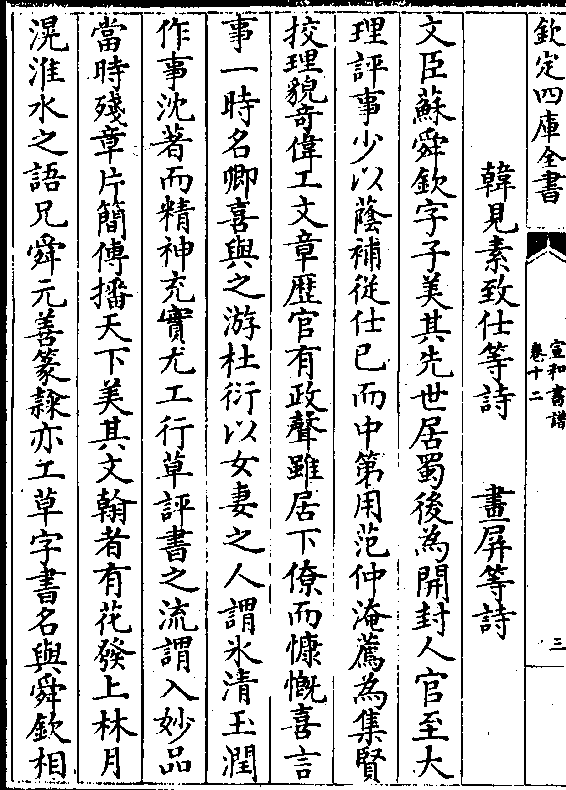 欽定四庫全書
宣和書譜
卷十二
三
韓見素致仕等詩 畫屏等詩
文臣蘇舜欽字子美其先世居蜀後為開封人官至大
理評事少以蔭補從仕已而中第用范仲淹薦為集賢
挍理貌奇偉工文章歴官有政聲雖居下僚而慷慨喜言
事一時名卿喜與之游杜衍以女妻之人謂氷清玉潤
作事沈著而精神充實尤工行草評書之流謂入妙品
當時殘章片簡傳播天下美其文翰者有花發上林月
滉淮水之語兄舜元善篆隸亦工草字書名與舜欽相